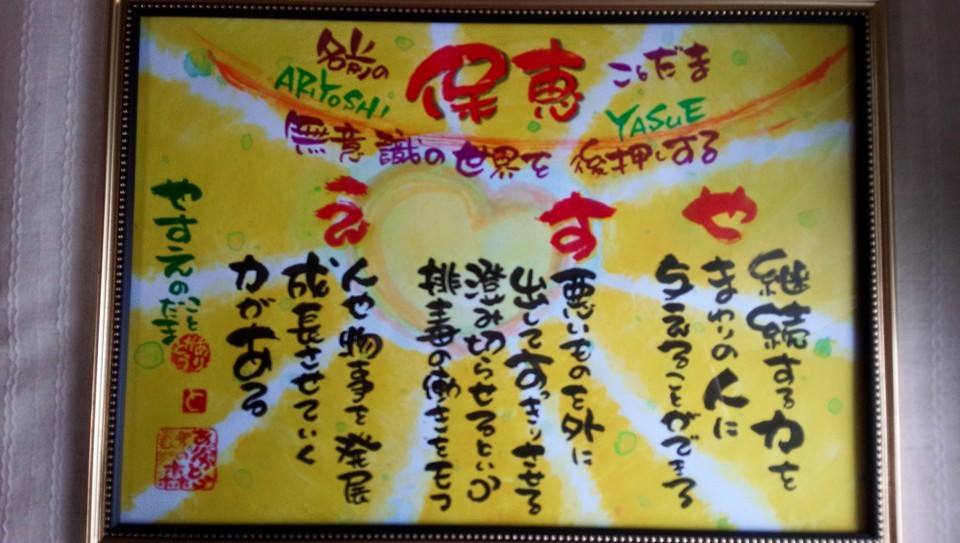 名前の
ARIYOSHI
保恵
ことだま
YASUE
無意識の世界を後押しする
や
継続する力を
まわりの人に
与えることができる
す
悪いものを外に
出してすっきりさせる
澄み切らせるという
排毒の働きをもつ
え
人や物事を発展
成長させていく
力がある
やすえのことだま